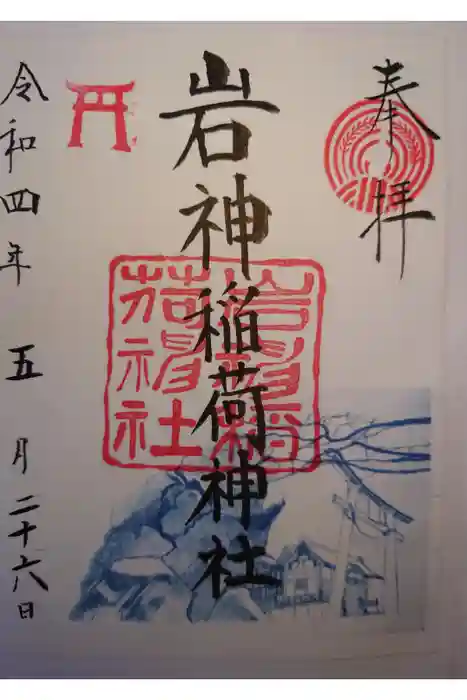 奉拝
岩神稲荷神社
岩神稲荷神社
令和四年 五 月二十六日